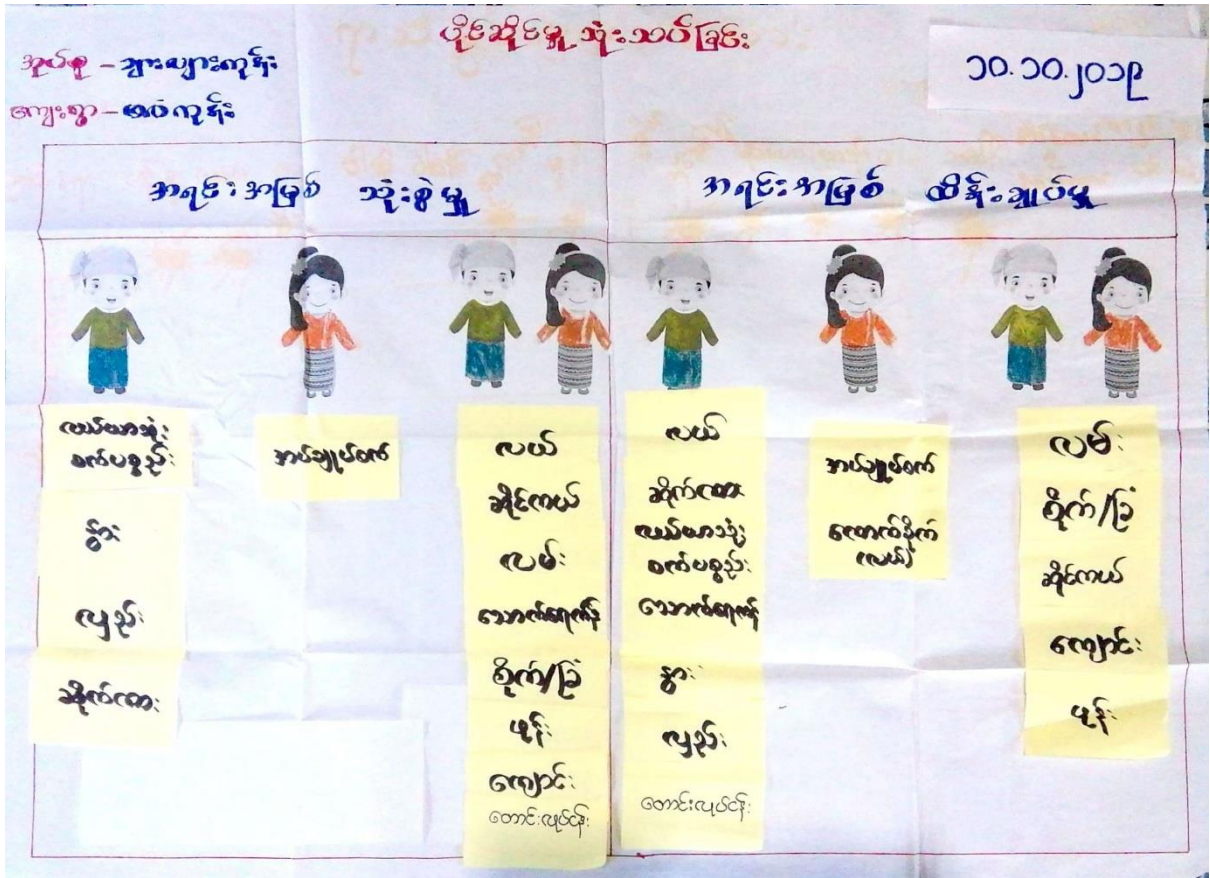 ပိုင်ဆိုင်မှု သုံးသပ်ခြင်း
အုပ်စု -
ကျေးရွာ -
၁၀.၁၀.၂၀၁၉
အရင်းအမြစ် သုံးစွဲမှု
အရင်းအမြစ် ထိန်းချုပ်မှု
လယ်ယာသုံး
စက်ပစ္စည်း
နွား
လှည်း
ဆိုက်ကား
အပ်ချုပ်စက်
လယ်
ဆိုင်ကယ်
လမ်း
သောက်ရေကန်
စိုက်/ခြံ
ဖုန်း
ကျောင်း
တောင်းလုပ်ငန်း
လယ်
ဆိုက်ကား
လယ်ယာသုံး
စက်ပစ္စည်း
သောက်ရေကန်
နွား
လှည်း
တောင်းလုပ်ငန်း
အပ်ချုပ်စက်
ကောက်စိုက်
(လယ်)
လမ်း
စိုက်/ခြံ
ဆိုင်ကယ်
ကျောင်း
ဖုန်း